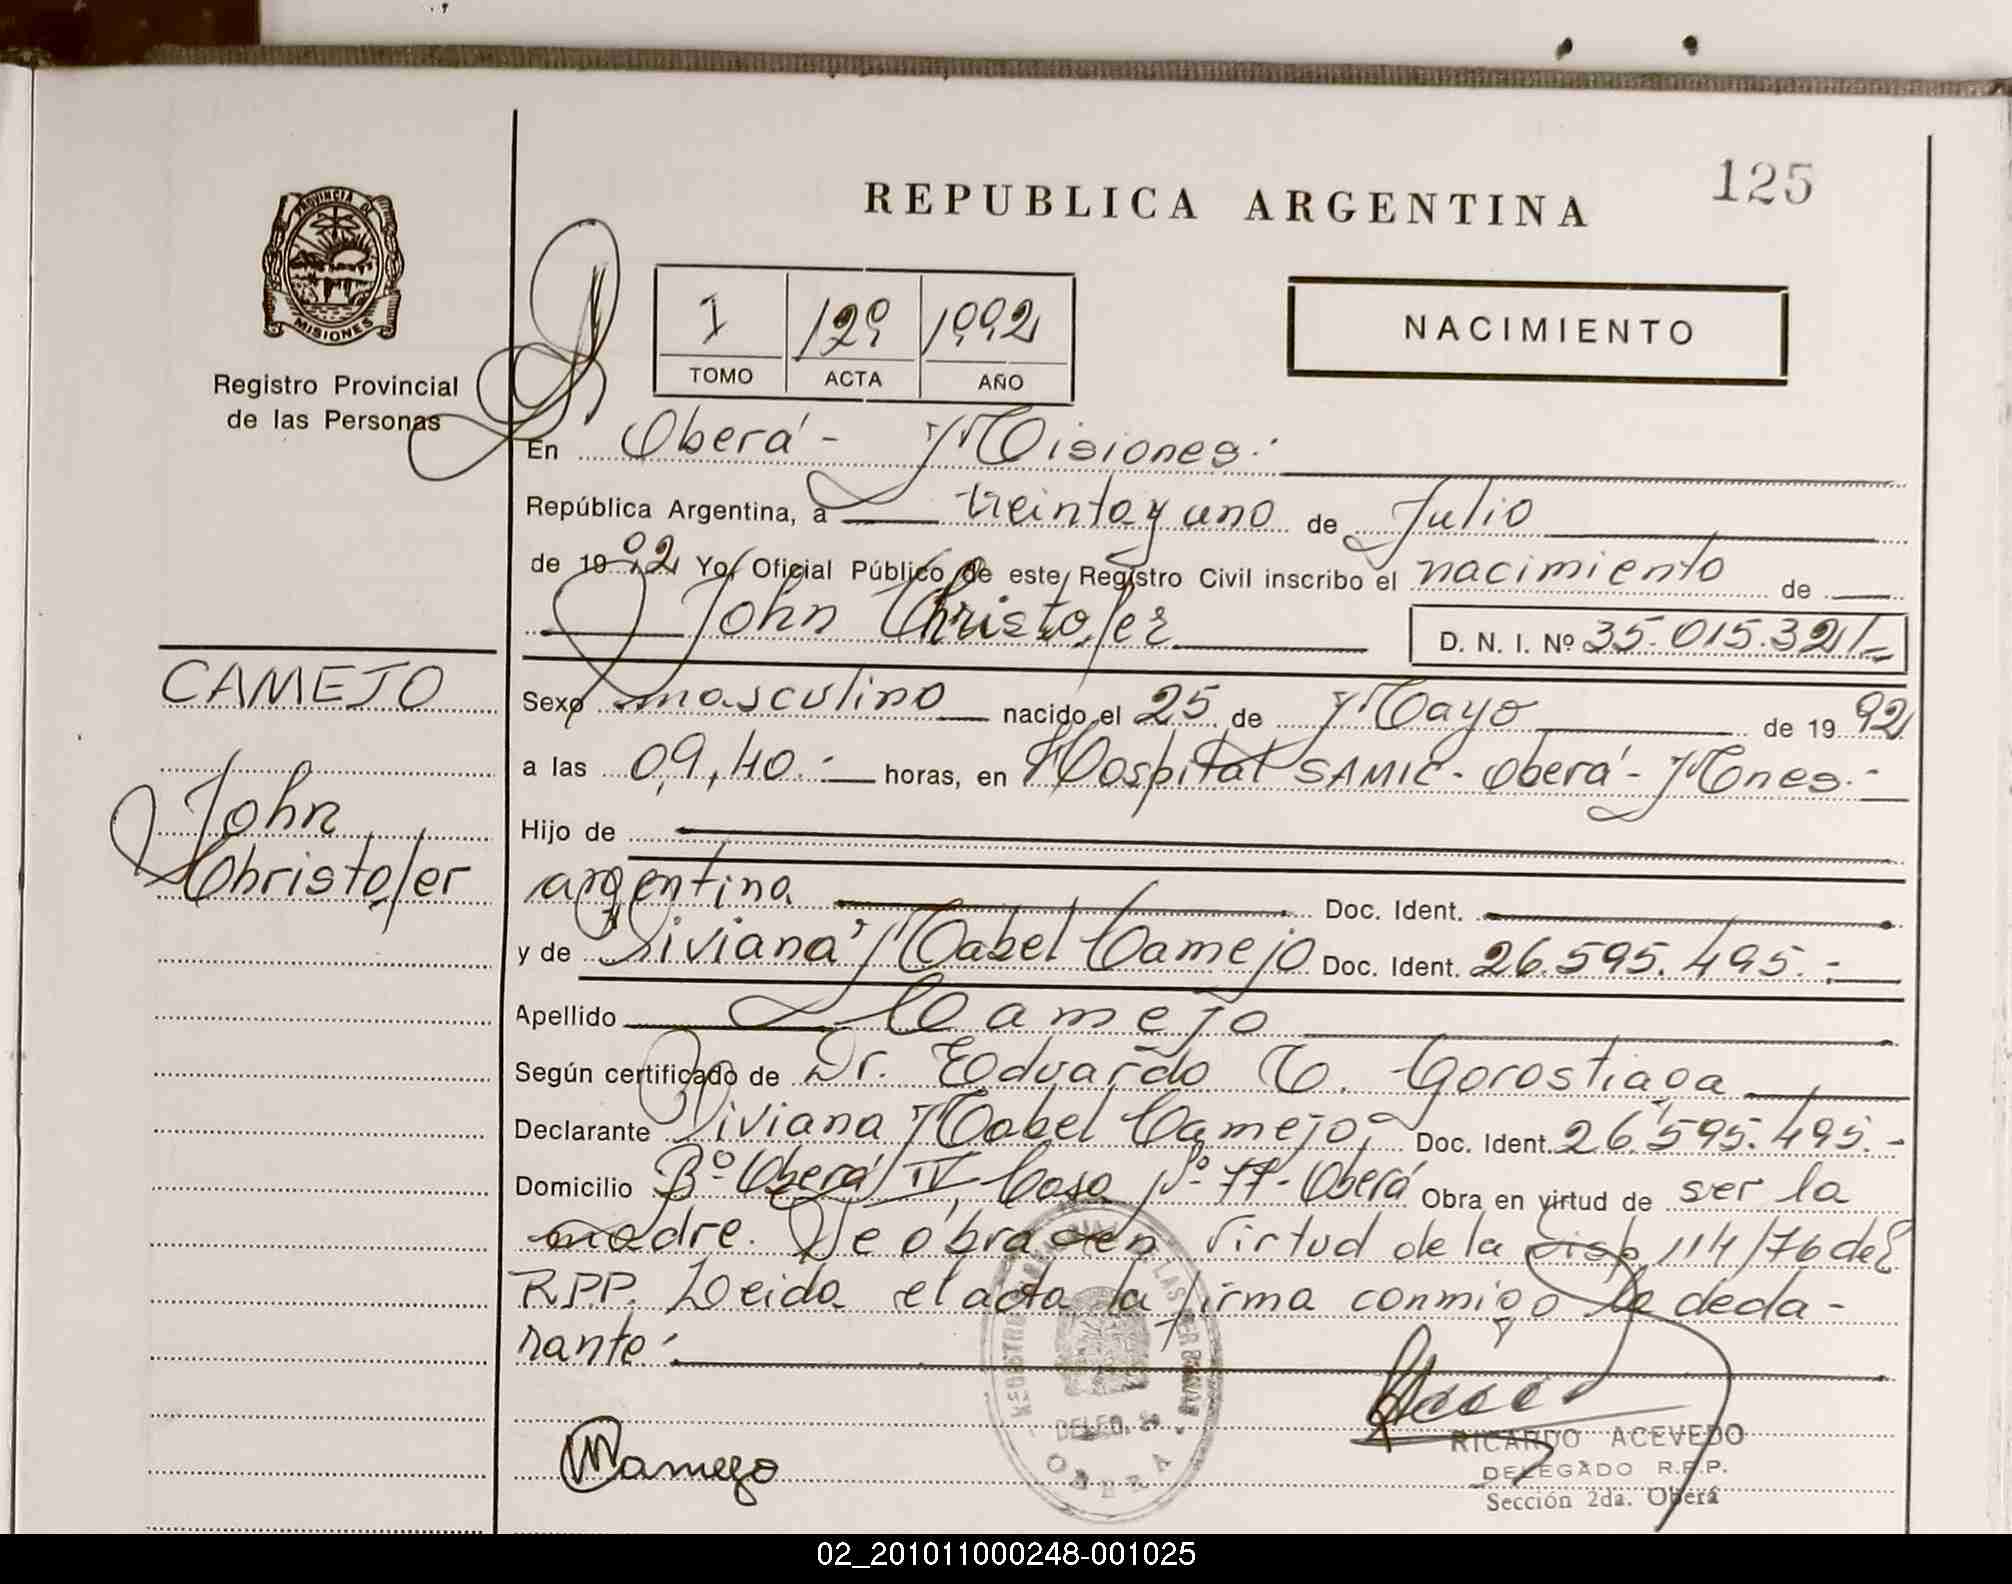 125
REPUBLICA ARGENTINA
PROVINCIA DE
MISIONES
Registro Provincial
de las Personas
1 129 1992
TOMO ACTA AÑO
NACIMIENTO
En Oberá - Misiones.
República Argentina, a treinta y uno de Julio
de 1992 Yo, Oficial Público de este Registro Civil inscribo el nacimiento de
John Christofer D. N. I. Nº 35.015.321/-
CAMEJO
John
Christofer
Sexo masculino nacido el 25 de Mayo de 1992
a las 09,40.- horas, en Hospital SAMIC - Oberá - Mones.-
Hijo de
argentina Doc. Ident.
y de Viviana Mabel Camejo Doc. Ident. 26.595.495.-
Apellido Camejo
Según certificado de Dr. Eduardo C. Gorostiaga
Declarante Viviana Mabel Camejo,- Doc. Ident. 26.595.495.-
Domicilio Bº Oberá IV, Casa Nº 77 - Oberá Obra en virtud de ser la
madre. Se obra en virtud de la Disp 114/76 del
R.P.P. Leida el acta la firma conmigo la decla-
rante.-
DELEG. 2a
OBERA
Camejo
RICARDO ACEVEDO
DELEGADO R.P.P.
Sección 2da. Oberá
02_201011000248-001025